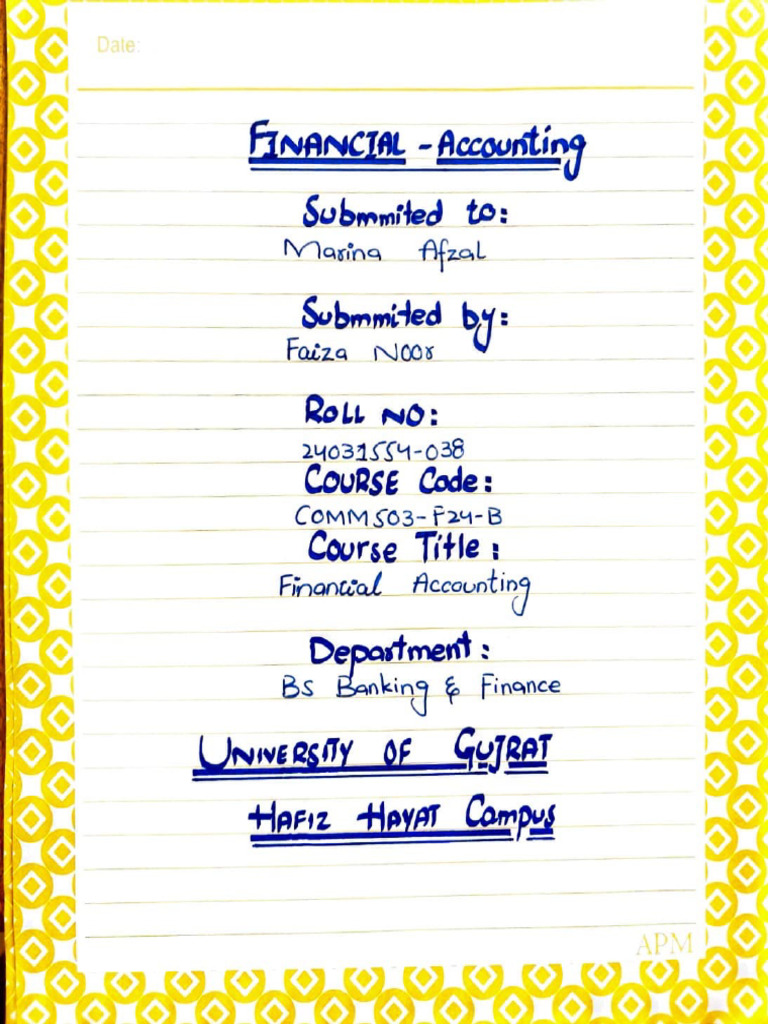 Date:
FINANCIAL - Accounting
Submmited to:
Marina Afzal
Submmited by:
Faiza Noor
ROLL NO:
24031554-038
COURSE Code:
COMM503-F24-B
Course Title:
Financial Accounting
Department:
BS Banking & Finance
UNIVERSITY OF GUJRAT
HAFIZ HAYAT Campus
APM